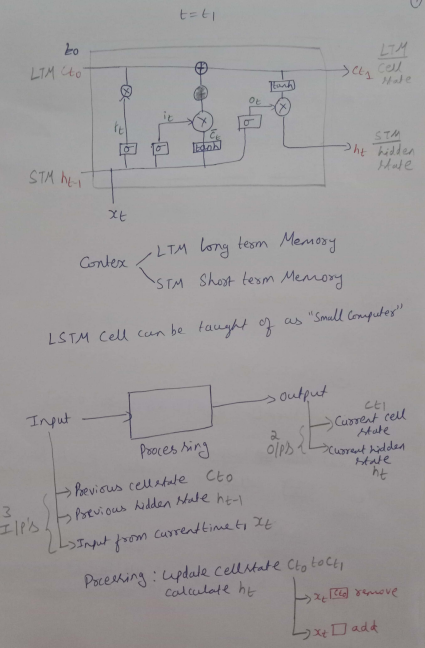 t = t₁
t₀
LTM Ct₀
Ct₁
LTM
Cell
State
+
tanh
×
×
Ot
×
it
it
C̃t
σ
σ
σ
tanh
STM ht-1
ht
STM
hidden
state
xt
Contex
LTM Long term Memory
STM Short term Memory
LSTM Cell can be taught of as "Small Computer"
Input
Processing
Output
2
O/P's
Ct₁
Current cell
state
Current hidden
state
ht
3
I/P's
Previous cell state Ct₀
Previous hidden state ht-1
Input from current time t, xt
Processing : Update cell state Ct₀ to Ct₁
calculate ht
xt Ct₀ remove
xt add